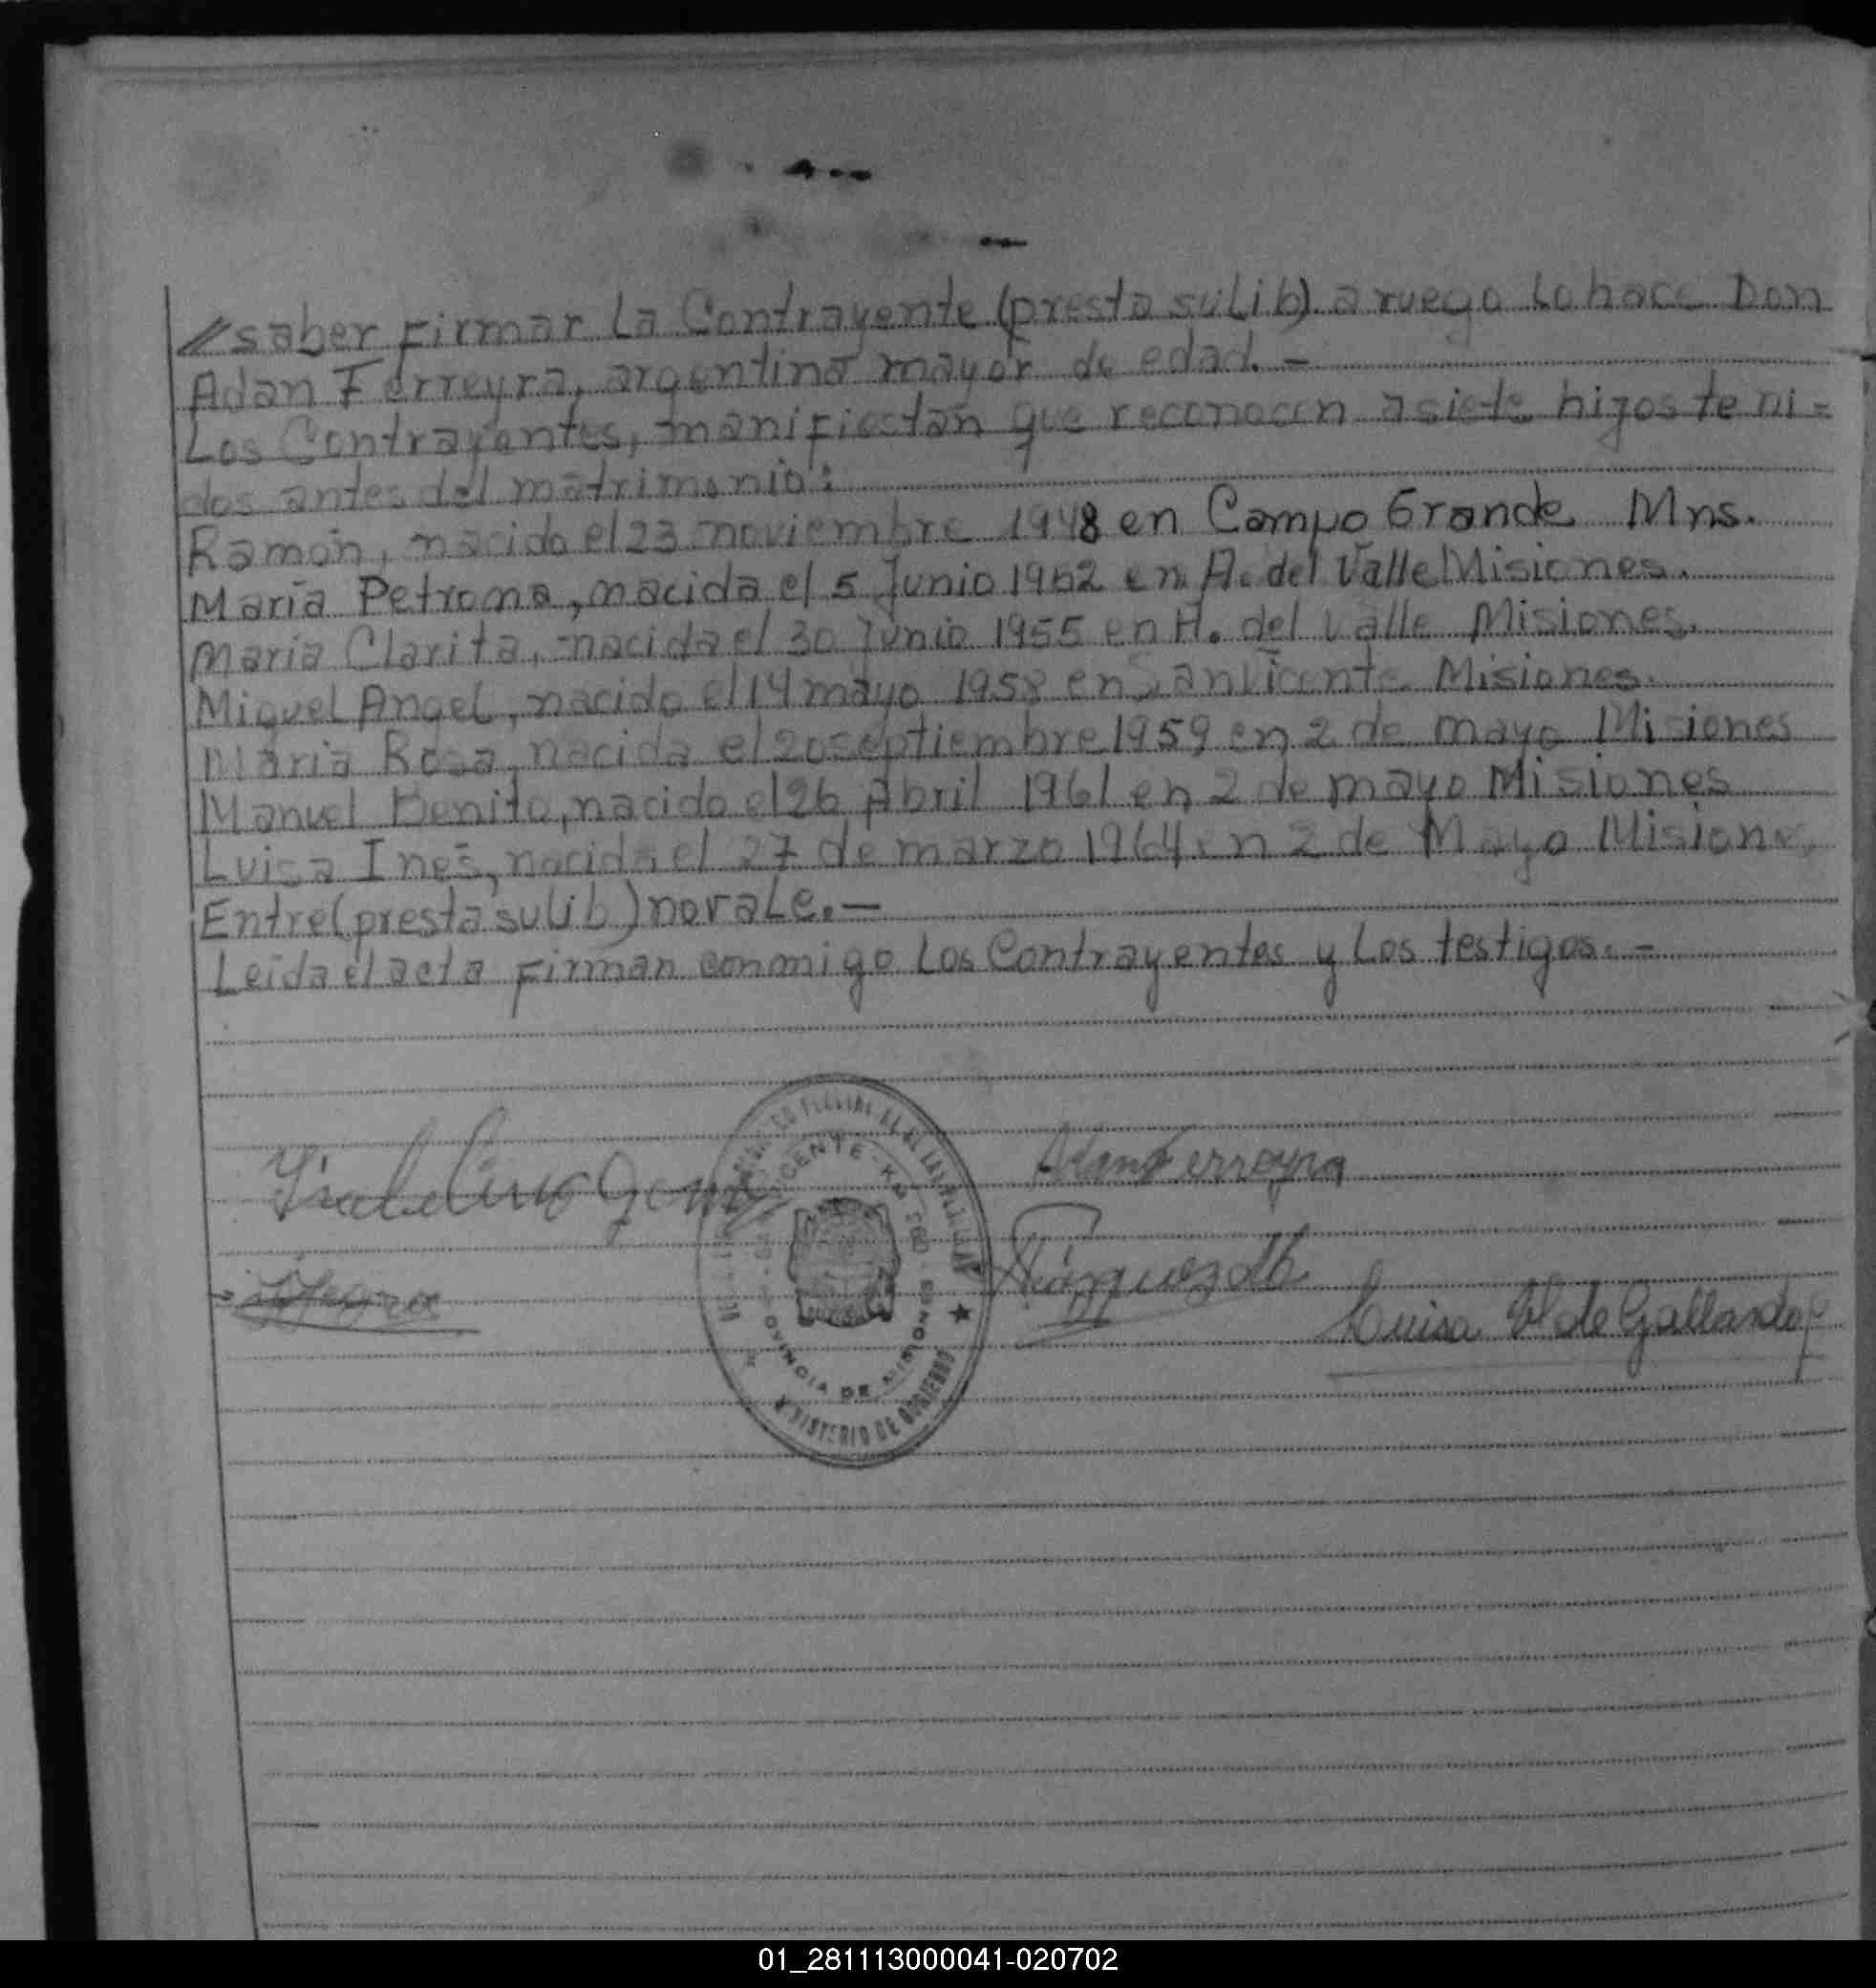 //saber firmar la Contrayente (presta sulib). a ruego lo hace Don
Adan Ferreyra, argentino mayor de edad. =
Los Contrayentes, manifiestan que reconocen a siete hijos teni=
dos antes del matrimonio:
Ramón, nacido el 23 noviembre 1948 en Campo Grande Mns.
Maria Petrona, nacida el 5 Junio 1952 en A. del Valle Misiones.
Maria Clarita, nacida el 30 Junio 1955 en H. del Valle Misiones.
Miguel Angel, nacido el 14 mayo 1958 en San Vicente Misiones.
Maria Rosa, nacida el 20 septiembre 1959 en 2 de mayo Misiones
Manuel Benito, nacido el 26 Abril 1961 en 2 de mayo Misiones
Luisa Inés, nacida el 27 de marzo 1964 en 2 de Mayo Misiones
Entre (presta sulib) no vale. —
Leida el acta firman conmigo los Contrayentes y los testigos. =
Adan Ferreyra
Luisa V. de Gallardo
VICENTE - K
PROVINCIA DE MISIONES
MINISTERIO DE GOBIERNO
01_281113000041-020702